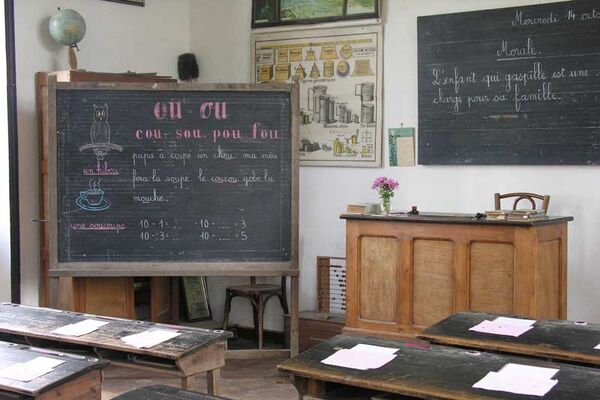 ou - ou
cou - sou - pou - fou
papa a coupé un chou, ma mère
un hibou
fera la soupe. le coucou gobe la
mouche.
une soucoupe
10-1= ... -10-... = 3
10-3= ... 10-... = 5
Mercredi 14
Morale.
L'enfant qui gaspille est une
charge pour sa famille.